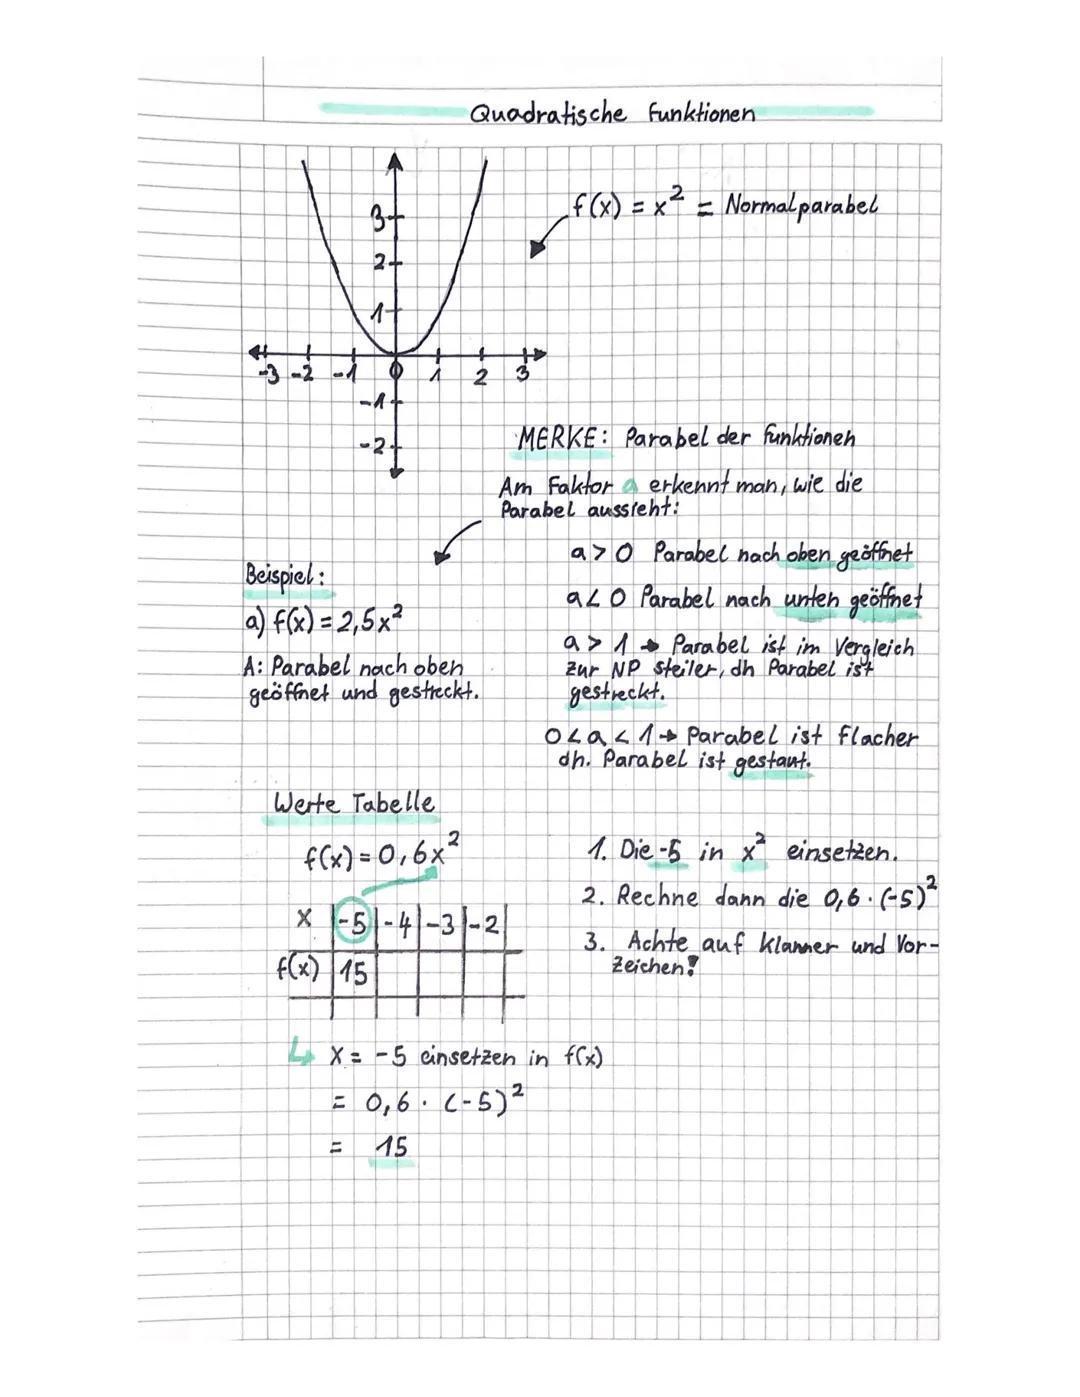 Quadratische Funktionen
f(x) = x² = Normalparabel
3
2
1
-3 -2 -1 0 1 2 3
-1
-2
MERKE: Parabel der Funktionen
Am Faktor a erkennt man, wie die
Parabel aussieht:
a > 0 Parabel nach oben geöffnet
a < 0 Parabel nach unten geöffnet
a > 1 → Parabel ist im Vergleich
zur NP steiler, dh Parabel ist
gestreckt.
0 < a < 1 → Parabel ist flacher
dh. Parabel ist gestaut.
Beispiel:
a) f(x) = 2,5x²
A: Parabel nach oben
geöffnet und gestreckt.
Werte Tabelle
f(x) = 0,6x²
x -5 -4 -3 -2
f(x) 15
1. Die -5 in x² einsetzen.
2. Rechne dann die 0,6 · (-5)²
3. Achte auf Klammer und Vor-
zeichen!
↳ X = -5 einsetzen in f(x)
= 0,6 · (-5)²
= 15